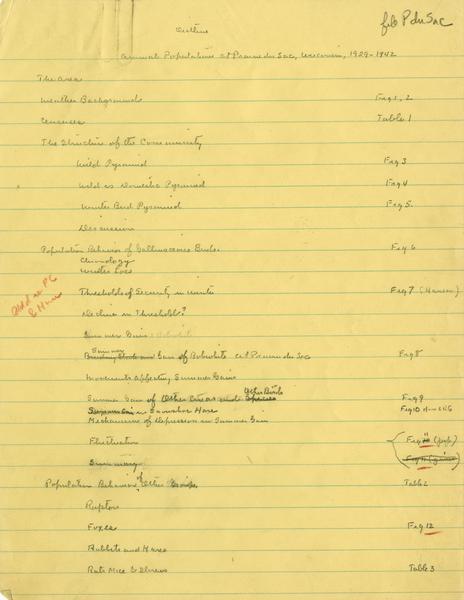 Outline
file P du Sac
Animal Populations at Prairie du Sac, Wisconsin, 1929-1942
The Area
Weather Backgrounds Fig 1, 2
Censuses Table 1
The Structure of the Community
Wild Pyramid Fig 3
Wild vs Domestic Pyramid Fig 4
Winter Bird Pyramid Fig 5
Discussion
Population Behavior of Gallinaceous Birds. Fig 6
Chronology
Winter Loss
Thresholds of Security in Winter Fig 7 (Hanson)
Add on PG & Huns
Decline in Thresholds?
Summer Gain
Summer Gain of Bobwhite at Prairie du Sac Fig 8
Movements Affecting Summer Gains
Other Birds
Summer Gain of Other Species Fig 9
in Snowshoe Hare Fig 10
Mechanism of Depression in Summer Gain
Fluctuation Fig 11 (pop)
Summary Fig 11 (gain)
Population Behavior of Other Groups Table 2
Raptors
Foxes Fig 12
Rabbits and Hares
Rats Mice & Shrews Table 3